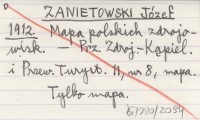 ZANIETOWSKI Józef
1912. Mapa polskich zdrojo-
wisk. — Prz. Zdroj-Kąpiel.
i Przew. Turyst. 11, nr 8, mapa.
Tylko mapa.